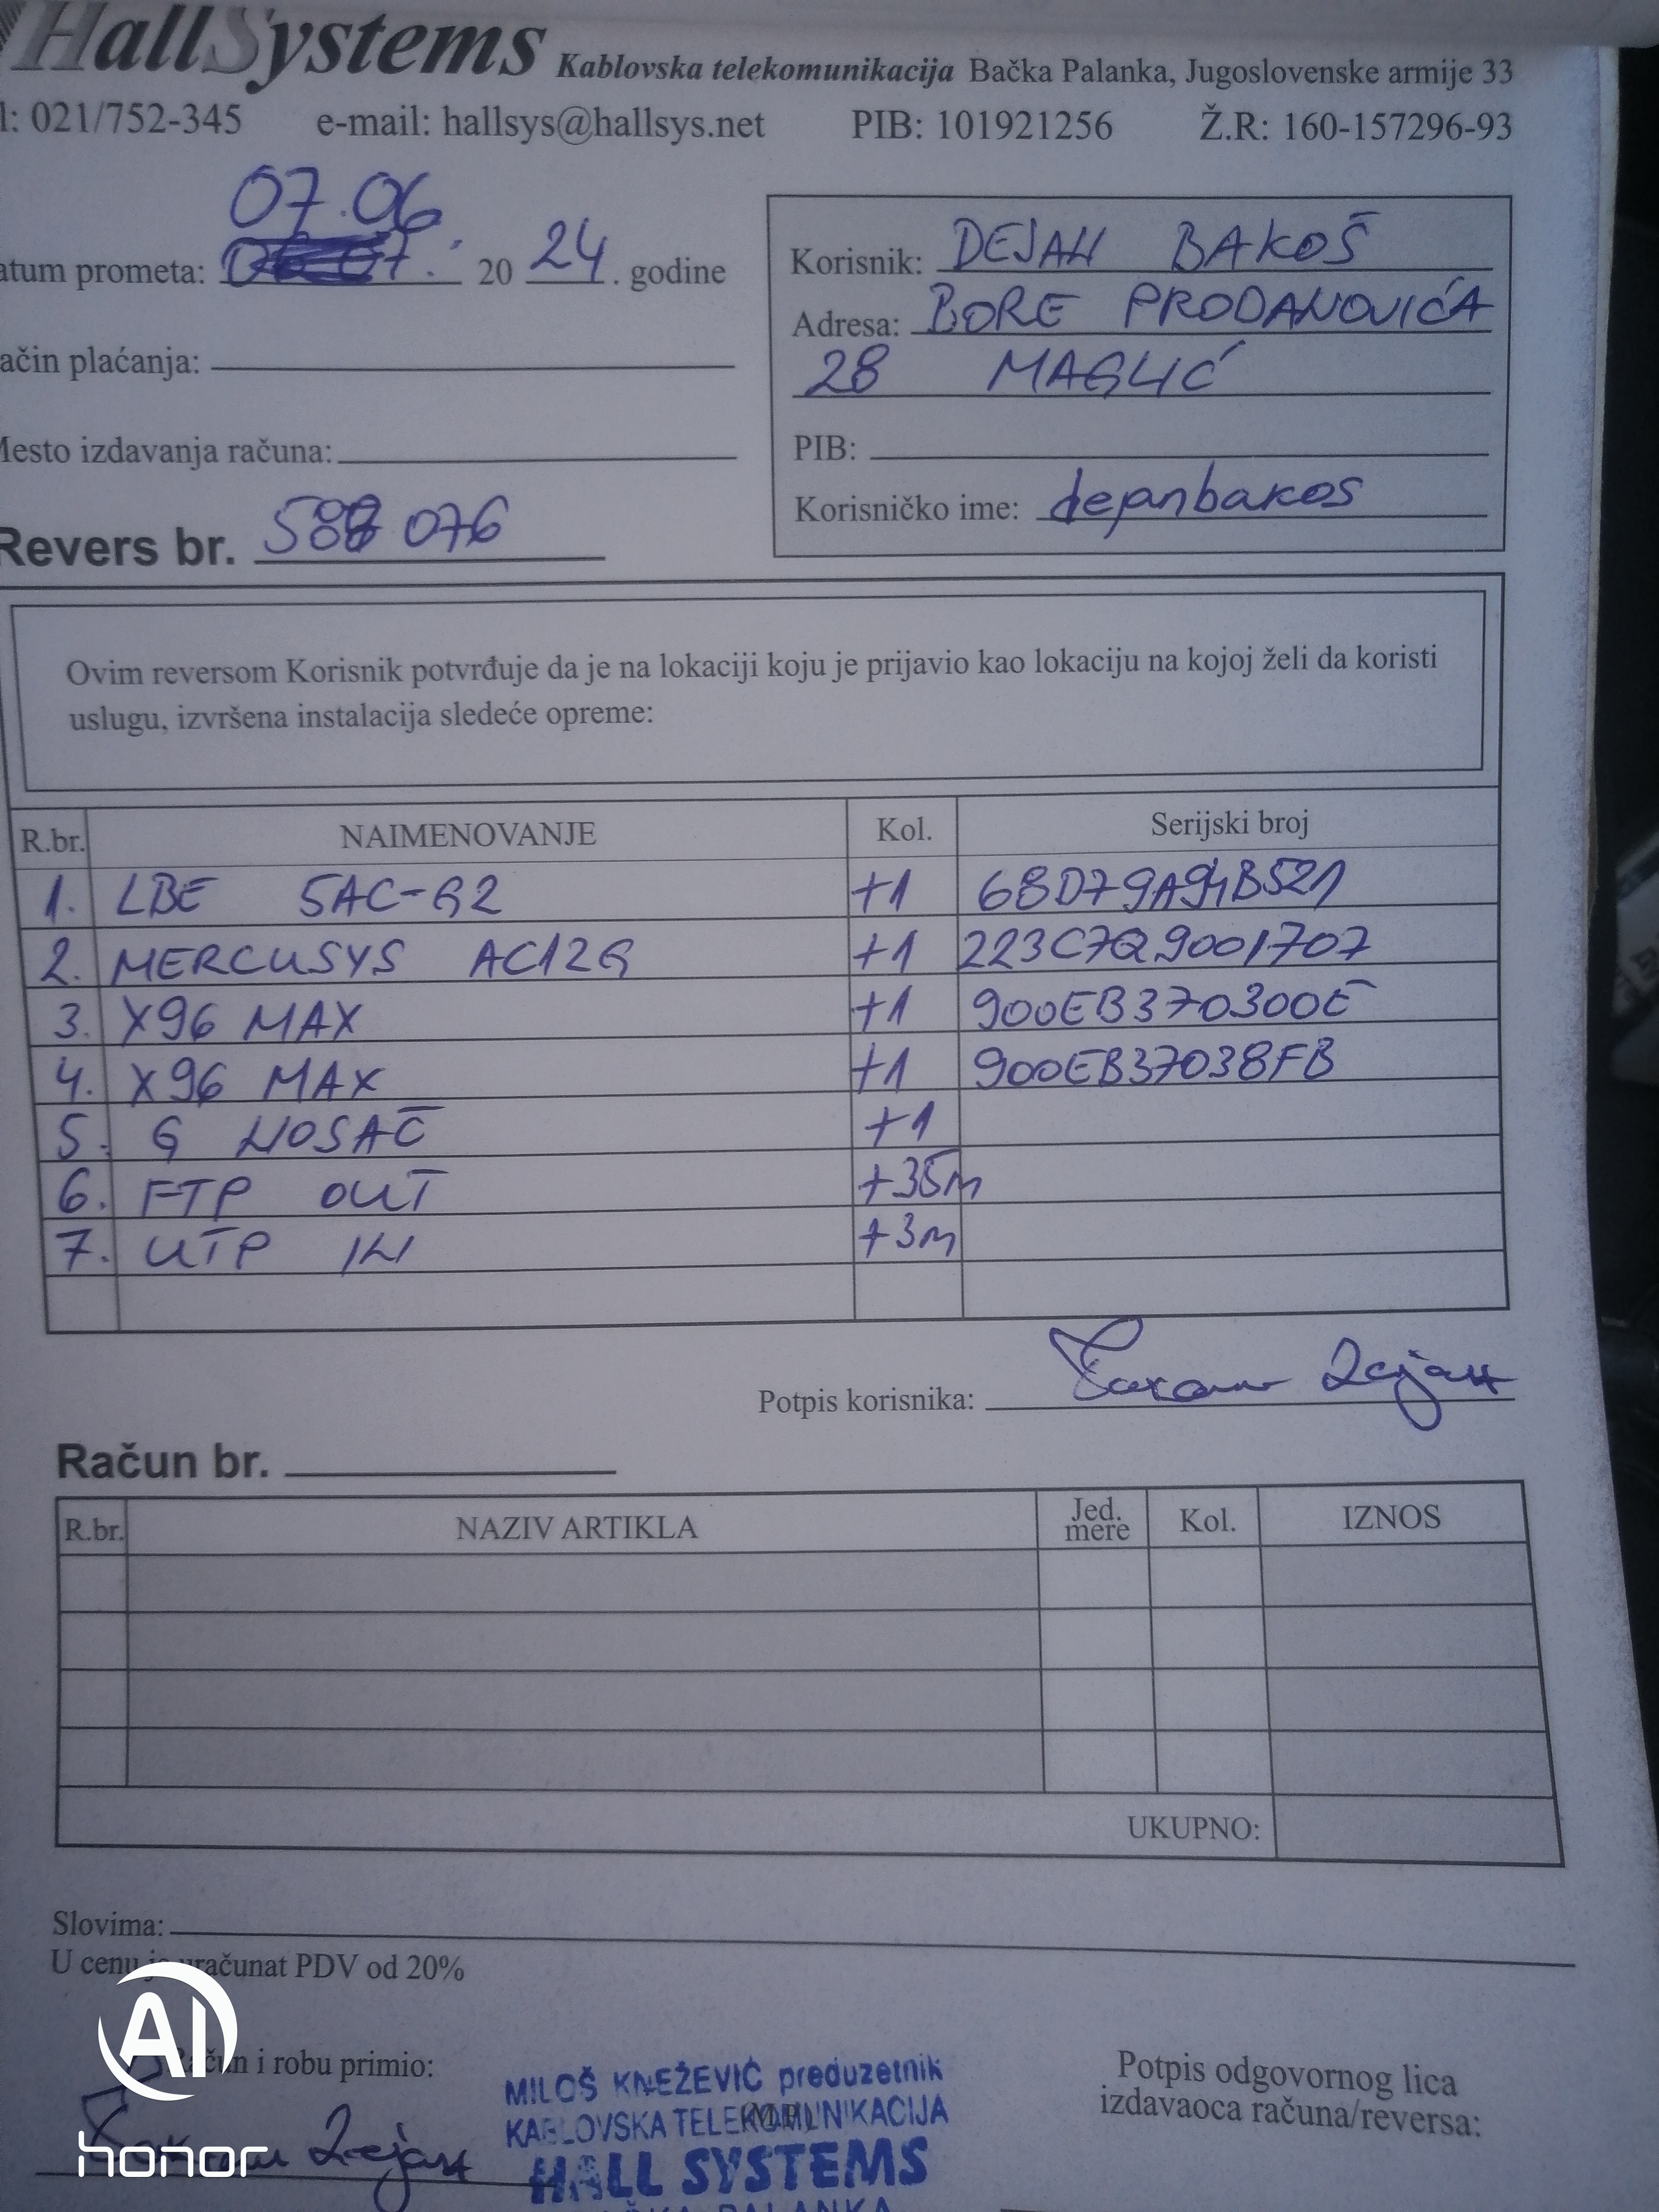 HallSystems Kablovska telekomunikacija Bačka Palanka, Jugoslovenske armije 33
l: 021/752-345 e-mail: hallsys@hallsys.net PIB: 101921256 Ž.R: 160-157296-93
07.06
atum prometa: 20 24. godine
Korisnik: DEJAN BAKOŠ
Adresa: BORE PRODANOVIĆA
28 MAGLIĆ
ačin plaćanja:
Mesto izdavanja računa:
PIB:
Korisničko ime: dejanbakos
Revers br. 588 076
Ovim reversom Korisnik potvrđuje da je na lokaciji koju je prijavio kao lokaciju na kojoj želi da koristi
uslugu, izvršena instalacija sledeće opreme:
R.br. NAIMENOVANJE Kol. Serijski broj
1. LBE 5AC-G2 +1 68D79A94B521
2. MERCUSYS AC12G +1 223C7Q9001707
3. X96 MAX +1 900EB370300E
4. X96 MAX +1 900EB37038FB
5. G NOSAČ +1
6. FTP OUT +35m
7. UTP IN +3m
Potpis korisnika:
Račun br.
R.br. NAZIV ARTIKLA Jed. mere Kol. IZNOS
UKUPNO:
Slovima:
U cenu je uračunat PDV od 20%
AI
Račun i robu primio:
honor
MILOŠ KNEŽEVIĆ preduzetnik
KABLOVSKA TELEKOMUNIKACIJA
(M.P.)
HALL SYSTEMS
BAČKA PALANKA
Potpis odgovornog lica
izdavaoca računa/reversa: